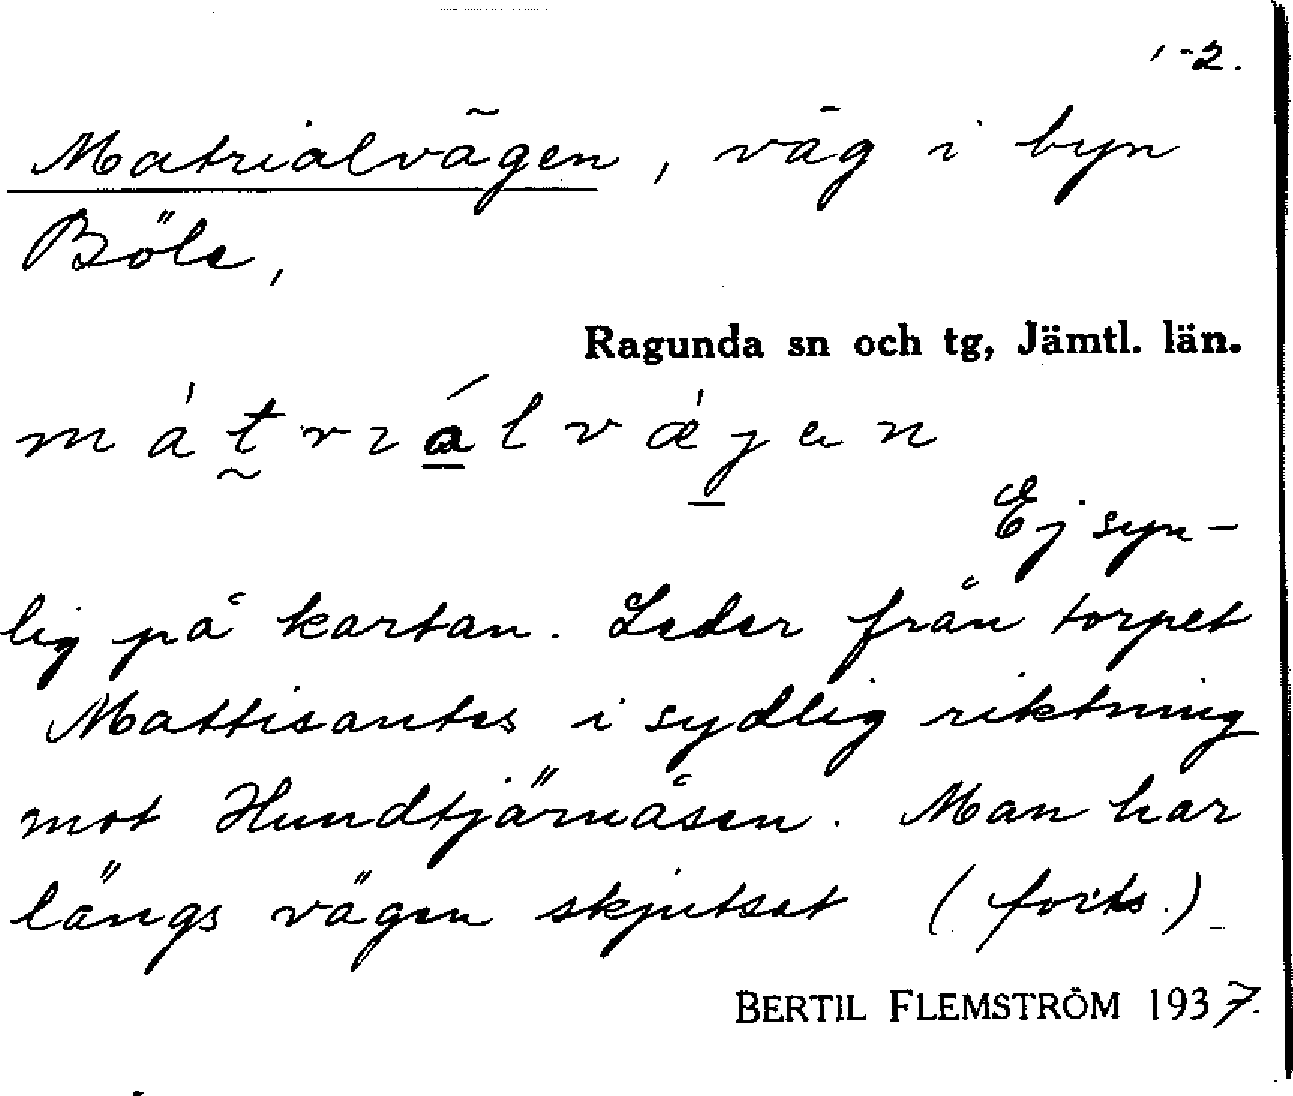 1-2.
Matrialvägen, väg i byn
Böle,
Ragunda sn och tg, Jämtl. län.
mátrıálvǽjen
Ej syn-
lig på kartan. Leder från torpet
Mattisantes i sydlig riktning
mot Hundtjärnåsen. Man har
längs vägen skjutsat (forts.)
BERTIL FLEMSTRÖM 1937.